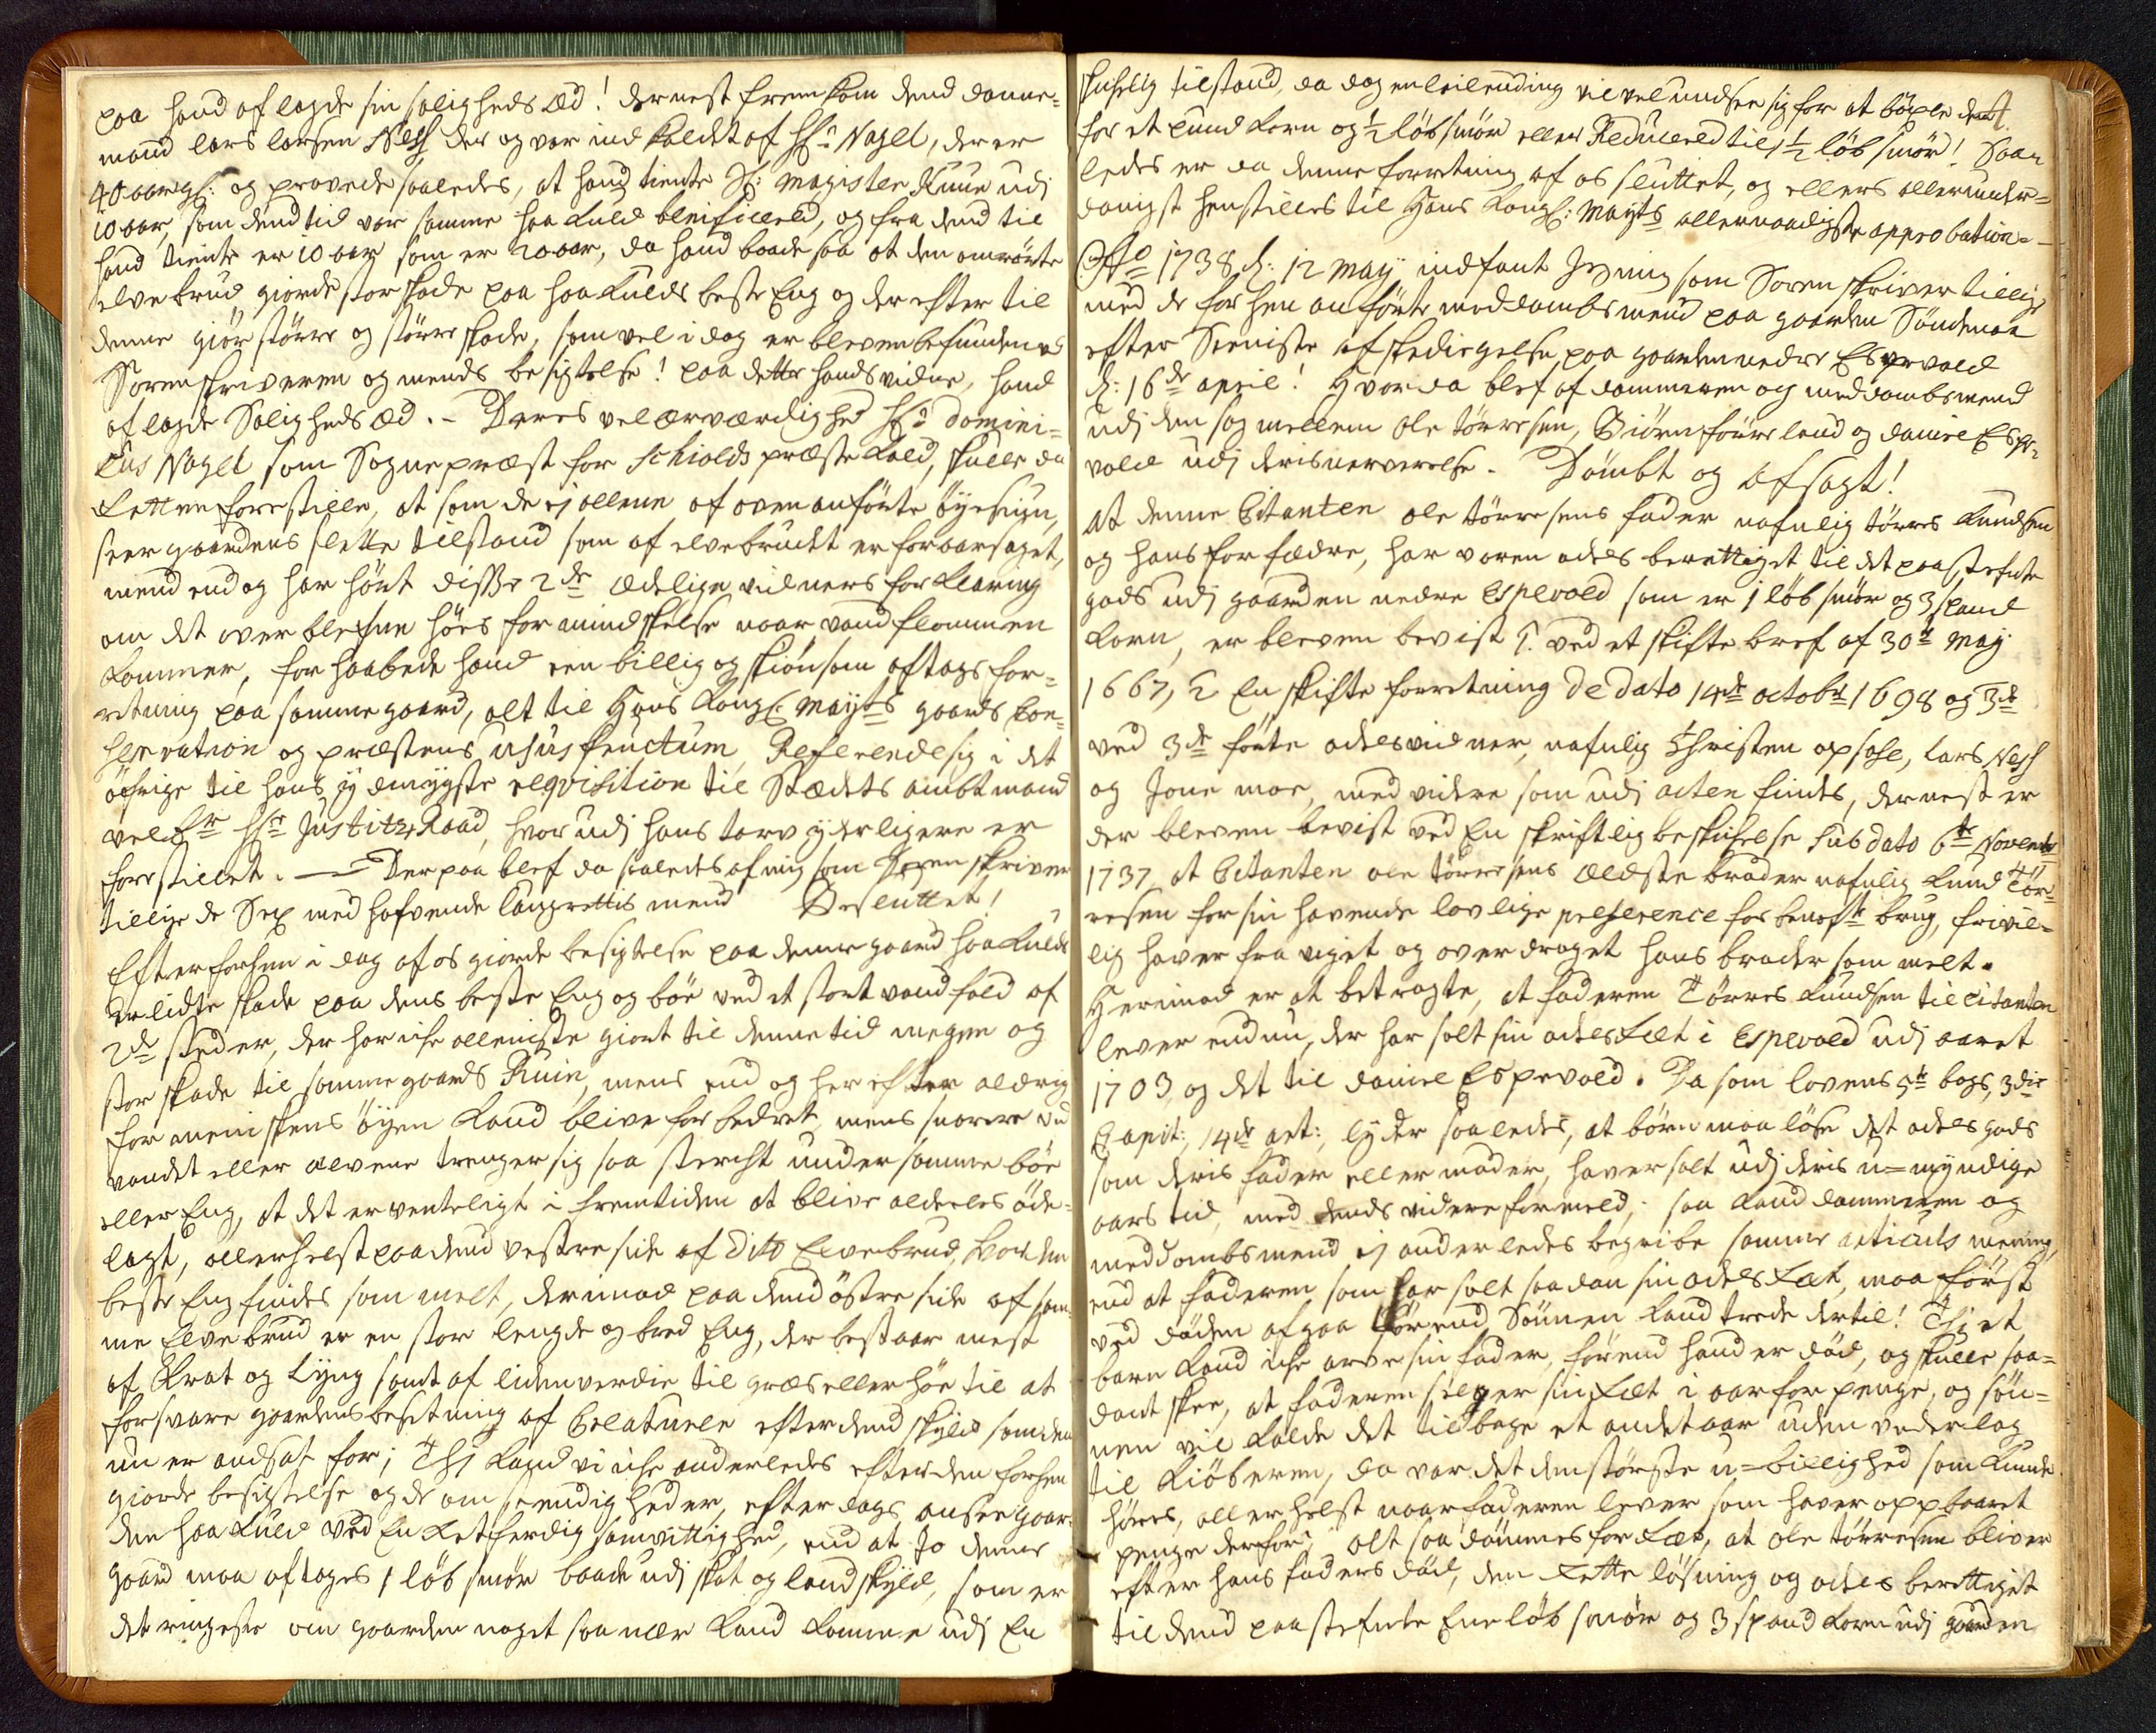 paa hand aflagde sin saligheds æd! dernest fremkom dend danne=
mand lars larsen Ness der og var ind kaldet af Hr: Nagel, der er
40 aar gl: og provede saaledes, at hand tiente Sl: Magister Kuur udj
10 aar, som dend tid var samme haakuld benificered, og fra dend til
hand tiente er 10 aar som er 20 aar, da hand baade saa at den omrørte
elvebrud giorde stor skade paa haakulds beste Eng og der efter til
denne giør større og større skade, som vel i dag er bleven befunden ved
Sorenskriveren og mends besigtelse! paa dette hands vidne, hand
aflagde Saligheds æd. - Deres velærværdighed Hr: Domini=
cus Nagel som Sogneprest for Schiolds præstekald, skulle da
retten forestille, at som de ej allene af ovenanførte øyesiun,
seer gaardens slette tilstand som af elvebrudet er foraarsaget,
mend end og har hørt disse 2de ædelige vidners forklaring
om det overblefne høes formindskelse naar vandflommen
kommer, forhaabede hand een billig og skiønsom aftags for=
retning paa samme gaard, alt til Hans Kongl: Mayts gaards con=
servation og præstens usus fructum, Refererende sig i det
øfrige til hans ydmygste reqvisition til Stædets ambtmand
velbr Hr Justitz Raad, hvor udj hans tarv yderligere er
forestillet. — Derpaa blef da saaledes af mig som Soren skriver
tillige de Sex medhafvende Laugrettis mend Besluttet!
Efter forhen i dag af os giorde besigtelse paa denne gaard haakulds
erlidte skade paa dens beste Eng og bøe ved et stort vandfald af
2de steder, der har iche alleniste giort til denne tid megen og
stor skade til samme gaards Ruin, mens end og her efter aldrig
for meniskens øyen kand blive forbedret, mens snarere ved
vandet eller elvene trenger sig saa sterckt under samme bøe
eller Eng, at det er venteligt i fremtiden at blive aldeeles øde=
lagt, allerhelst paa dend vestre side af dito Elvebrud, hvor den
beste Eng findes som melt, derimod paa dend østre side af sam=
me Elvebrud er en stor lengde og bred Eng, der bestaar mest
af Krat og Lyng samt af liden verdie til græs eller høe til at
forsvare gaardens besetning af Creaturer efter dend skyld som den
nu er andsat for; Thj kand vi iche anderledes efter den forhen
giorde besigtelse og de omstendigheder, efter dags ansee gaar=
den haakuld ved En Retferdig samvittighed, end at jo denne
gaard maa aftages 1 løb smør baade udj skat og landskyld, som er
det ringeste om gaarden noget saa nær kand komme udj En
skichelig tilstand, da dog en leilending vil vel undsee sig for at böxle dend
for et pund korn og ½ løb smør eller Reducered til 1½ løb smør! Saa=
ledes er da denne forretning af os sluttet, og ellers allerunder=
danigst henstilles til Hans Kongl: Mayts allernaadigste approbation. —
Ao 1738 d: 12 May indfant Jeg mig som Sorenskriver tillige
med de forhen anførte meddombsmend paa gaarden Søndenaa
efter Seeniste afskedigelse paa gaarden nedre Espevold
d: 16de april! Hvor da blef af dommeren og meddombsmend
udj den sag mellem Ole Tørresen, Biørn fourreland og daniel Espe=
vold udj deris nerverelse. Dømbt og afsagt!
At denne Citanten ole tørresens fader nafnlig tørres Knudsen
og hans forfædre, har voren odels berettiget til det paastefnte
gods udj gaarden nedre Espevold som er 1 løb smør og 3 spand
korn, er bleven bevist 1. ved et skiftebref af 30te May
1667, 2 En skifte forretning de dato 14de octobr 1698 og 3de
ved 3de førte odelsvidner, nafnlig Christen opsahl, Lars Ness
og Jone moe, med videre som udj acten findes, dernest er
der bleven bevist ved En skriftlig beskichelse sub dato 6te Novembr
1737, at Citanten ole tørresens ældste broder nafnlig Knud Tør=
resen for sin havende lovlige preference for benefte brug, frivil=
lig haver fra viget og overdraget hans broder som melt.
Herimod er at betragte, at faderen Tørres Knudsen til citanten
lever endnu, der har solt sin odelsræt i Espevold udj aaret
1703, og det til daniel Espevold. Da som lovens 5te bogs, 3die
Capit:, 14de art:, lyder saaledes, at børn maa løse det odels gods
som deris fader eller moder haver solt udj deris u=myndige
aars tid, med dends videre formeld, saa kand dommeren og
meddombsmend ej anderledes begribe samme articuls mening,
end at faderen som har solt saadan sin odels ræt, maa først
ved døden afgaa førend Sønnen kand træde dertil! Thj et
barn kand iche arve sin fader, førend hand er død, og skulle saa=
dant skee, at faderen selger sin ræt i aar for penge, og søn=
nen vil kalde det tilbage et andet aar uden vederlag
til kiøberen, da var det den største u=billighed som kunde
høres, allerhelst naar faderen lever som haver oppebaaret
penge derfor; alt saa dømmes for ræt, at ole tørresen bliver
efter hans faders død, den rette løsning og odels berettiget
til dend paastefnte Ene løb smør og 3 spand korn udj gaarden